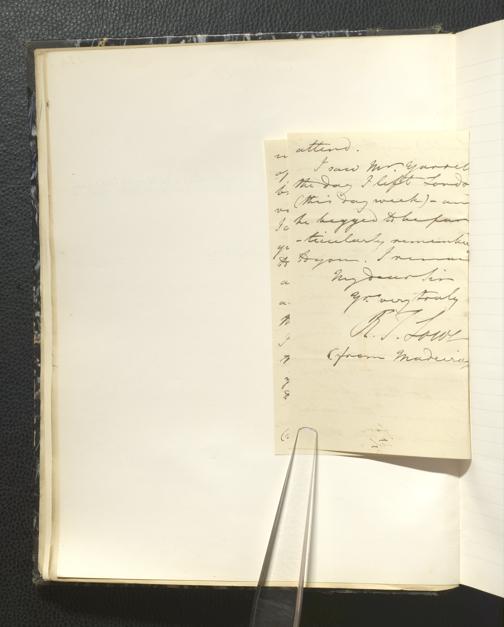 attend.
I saw Mr. Yarrell
the day I left Londo
(this day week) - an
he begged to be par
-ticularly remembe
to you. I remai
My dear Sir
Yrs. very truly
R. T. Lowe
(from Madeira